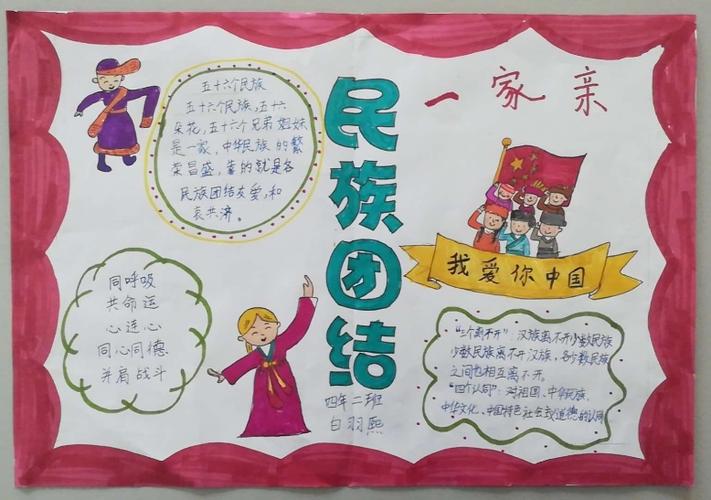 五十六个民族
五十六个民族,五十六
朵花,五十六个兄弟姐妹
是一家,中华民族的繁
荣昌盛,靠的就是各
民族团结友爱,和
衷共济。
民族团结
一家亲
我爱你中国
同呼吸
共命运
心连心
同心同德
并肩战斗
四年二班
白羽熙
“三个离不开”:汉族离不开少数民族
少数民族离不开汉族,各少数民族
之间也相互离不开。
“四个认同”:对祖国、中华民族、
中华文化、中国特色社会主义道德的认同